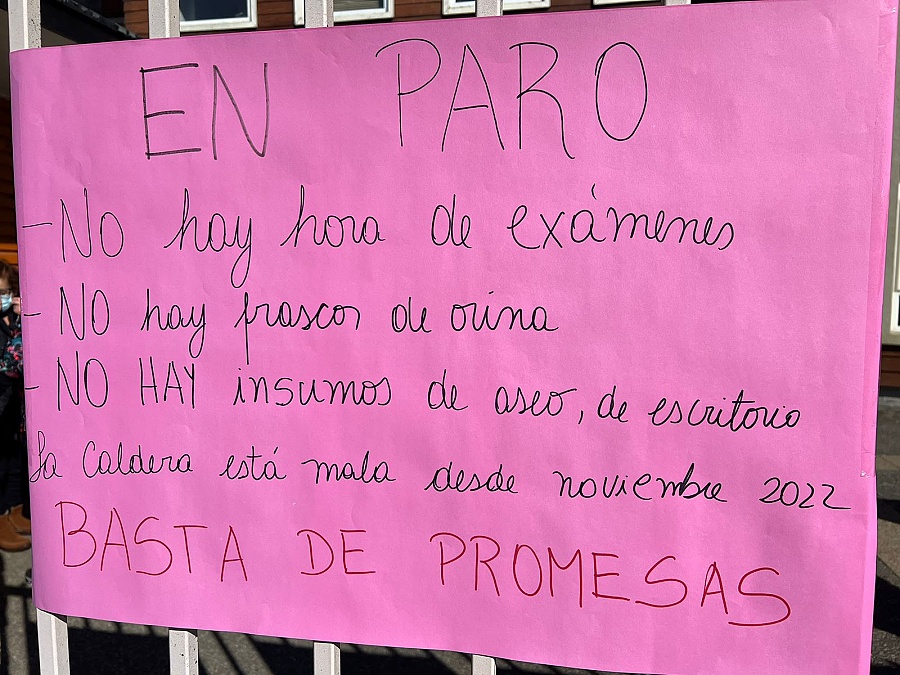 EN PARO
- No hay hora de exámenes
- NO hay frascos de orina
- NO HAY insumos de aseo, de escritorio
La Caldera está mala desde noviembre 2022
BASTA DE PROMESAS